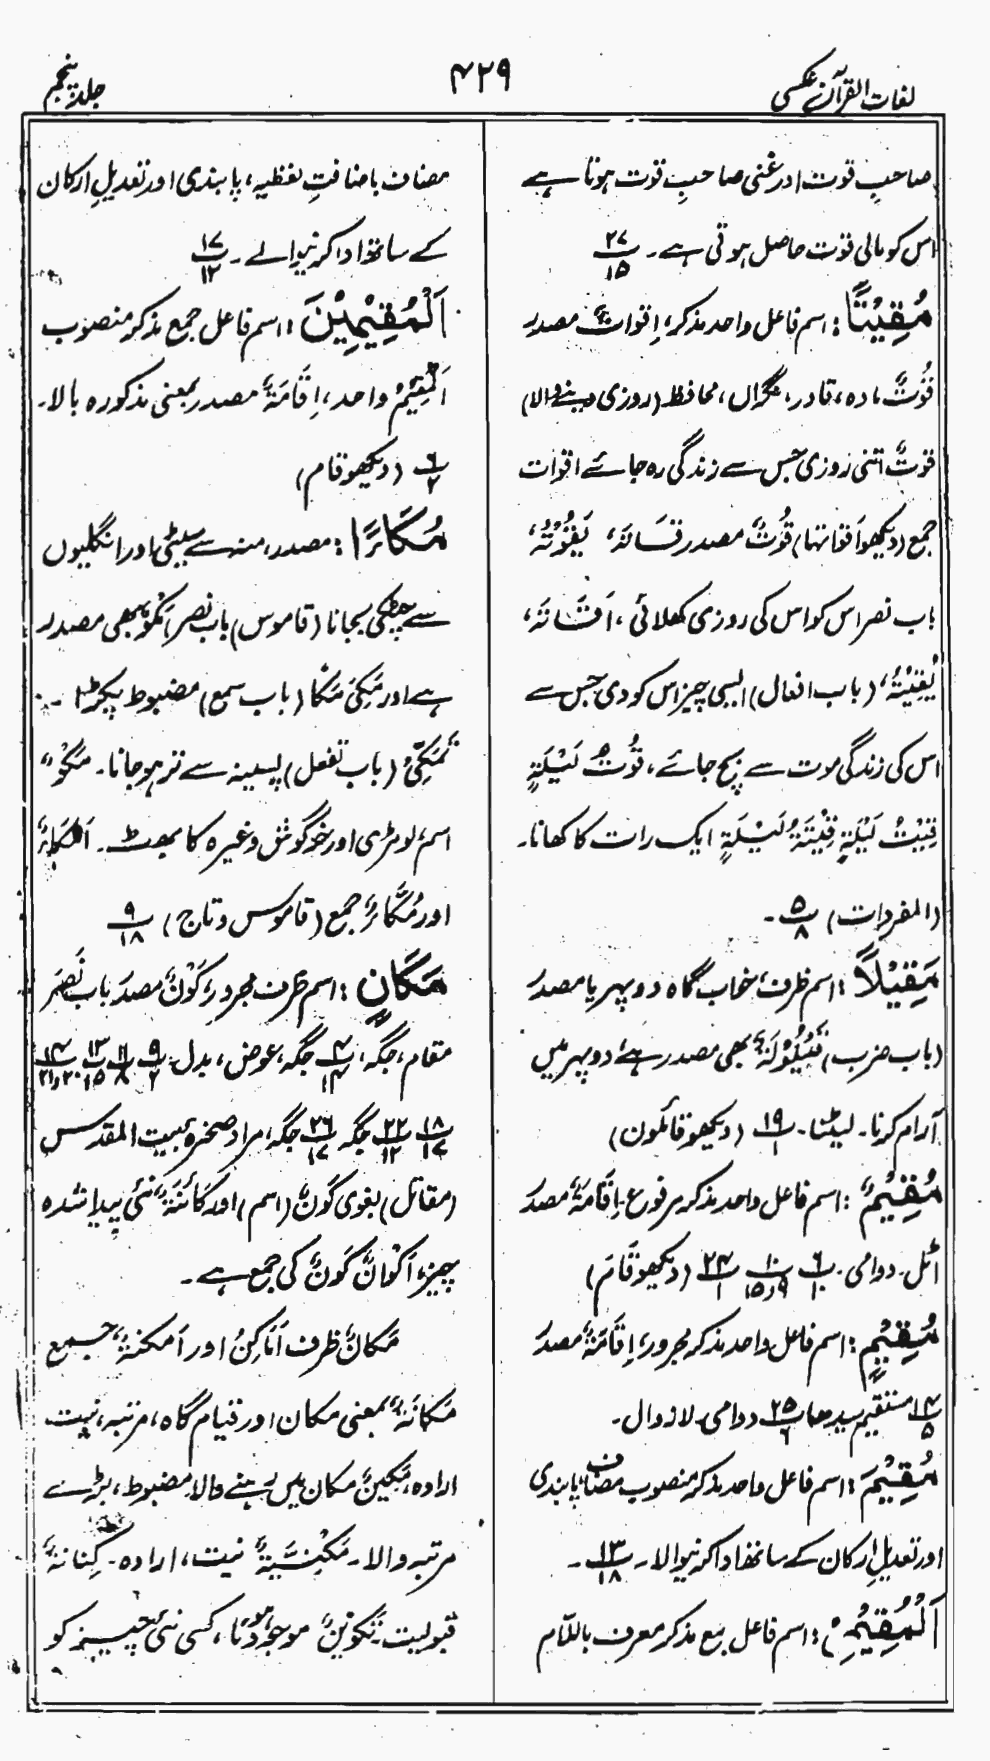 لغات القرآن عکسی
۴۲۹
جلد پنجم
صاحبِ قوت اور غنی صاحبِ قوت ہوتا ہے
اس کو مالی قوت حاصل ہوتی ہے۔ ۲۷/۱۵
مُقِیْتًا: اسم فاعل واحد مذکر، اِقوات مصدر
قُوْتٌ مادہ، قادر، نگراں، محافظ (روزی دینے والا)
قوتٌ اتنی روزی جس سے زندگی رہ جائے اقوات
جمع (دیکھو اَقواتہا) قُوْتٌ مصدر قَاتَہٗ، یَقُوْتُہٗ،
باب نصر اس کو اس کی روزی کھلائی، اَقَاتَہٗ،
یُقِیْتُہٗ، (باب افعال) ایسی چیز اس کو دی جس سے
اس کی زندگی موت سے بچ جائے، قُوْتُ لَیْلَۃٍ
قِیْتُ لَیْلَۃٍ قِیْتَۃُ لَیْلَۃٍ ایک رات کا کھانا۔
(المفردات) ۵/۸ ۔
مَقِیْلًا: اسم ظرف، خواب گاہ دوپہر یا مصدر
(باب ضرب) قَیْلُوْلَۃٌ بھی مصدر ہے، دوپہر میں
آرام کرنا۔ لیٹنا۔ ۱۹/۱ (دیکھو قائلون)
مُقِیْمٌ: اسم فاعل واحد مذکر مرفوع۔ اِقَامَۃٌ مصدر
اٹل۔ دوامی۔ ۶/۱۰ ۱۰/۹،۱۵ ۲۴/۱ (دیکھو قَامَ)
مُقِیْمٍ: اسم فاعل واحد مذکر مجرور، اِقَامَۃٌ مصدر
۱۴/۵ مستقیم سیدھا ۲۵/۶ دوامی۔ لازوال۔
مُقِیْمَ: اسم فاعل واحد مذکر منصوب مضاف پابندی
اور تعدیلِ ارکان کے ساتھ ادا کرنیوالا۔ ۱۳/۱۸ ۔
اَلْمُقِیْمِ: اسم فاعل جمع مذکر معرف باللّام
مضاف باضافتِ لفظیہ، پابندی اور تعدیلِ ارکان
کے ساتھ ادا کرنیوالے۔ ۱۷/۱۲
اَلْمُقِیْمِیْنَ: اسم فاعل جمع مذکر منصوب
اَلْمُقِیْمُ واحد، اِقَامَۃٌ مصدر بمعنی مذکورہ بالا۔
۶/۲ (دیکھو قام)
مُکَآءً: مصدر، منہ سے سیٹی اور انگلیوں
سے چٹکی بجانا (قاموس) باب نصر اَلْمَکْوُ بھی مصدر
ہے اور مَکِیَ مَکًا (باب سمع) مضبوط پکڑنا۔
تَمَکِّیْ (باب تفعل) پسینہ سے تر ہوجانا۔ مَکْوٌ
اسم لومڑی اور خرگوش وغیرہ کا بھٹ۔ اَلْمُکَاءُ
اور مُکَّاءٌ جمع (قاموس و تاج) ۹/۱۸
مَکَانٍ: اسم ظرف مجرور، کَوْنٌ مصدر باب نَصَرَ
مقام، جگہ، ۴/۱۴ جگہ، عوض، بدل۔ ۹/۲ ۱۱/۸ ۱۳/۱۵ ۱۴/۲۰،۲۱
۱۸/۱۷ ۲۲/۱۲ جگہ ۲۶/۱۷ جگہ، مراد صخرۂ بیت المقدس
(مقاتل) بغوی کَوْنٌ (اسم) اور کَائِنَۃٌ نئی پیدا شدہ
چیز، اَکْوَانٌ کَوْنٌ کی جمع ہے۔
مَکَانٌ ظرف اَمَاکِنُ اور اَمکنۃٌ، جمع
مَکَانَۃٌ بمعنی مکان اور قیام گاہ، مرتبہ، نیت
ارادہ، مَکِیْنٌ مکان میں رہنے والا، مضبوط، بڑے
مرتبہ والا۔ نیت، ارادہ۔
قبولیت۔ تَکْوِیْنٌ موجود ہونا، کسی نئی چیز کو